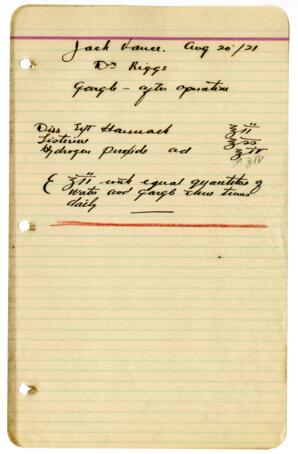 Jack Vance. Aug 20/21
Dr Riggs
Gargle - after operation
Listerine ℥ss
Hydrogen Peroxide ad ℥IV
℥IV
ʒII with equal quantities of
water and gargle three times
daily